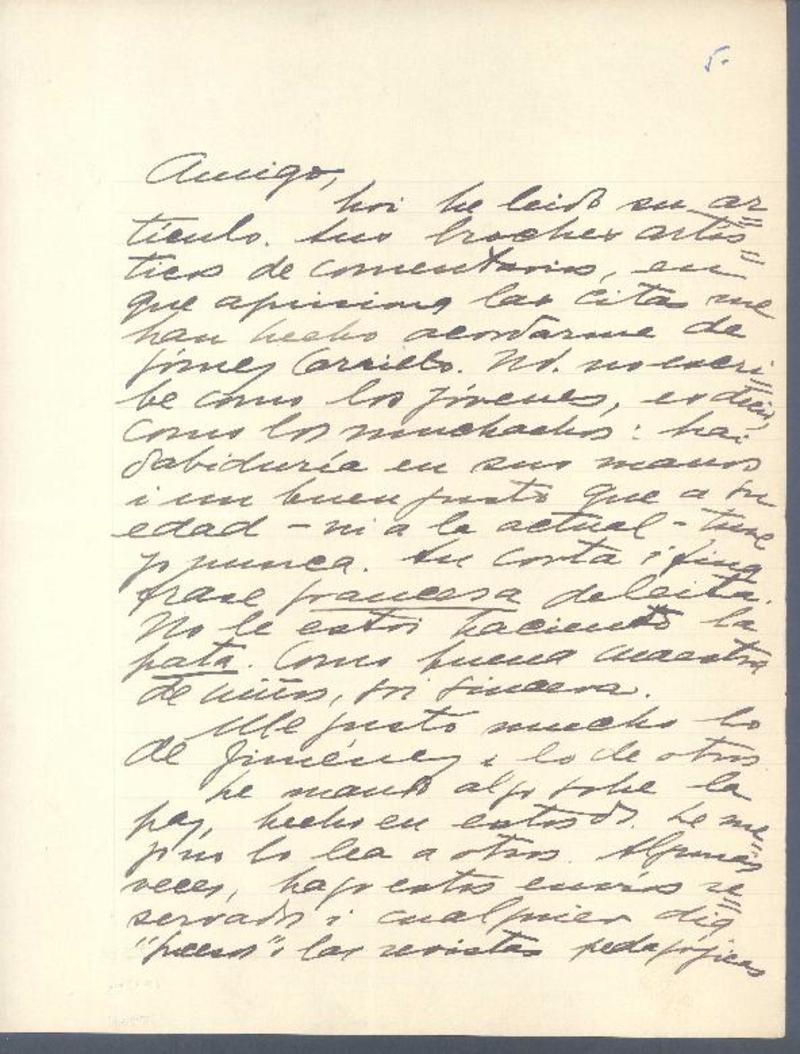 5.
Amigo,
hoi he leido su ar=
tículo. Sus broches artís=
ticos de comentarios, en
que aprisiona las citas me
han hecho acordarme de
Gómez Carrillo. Nó. no escri=
be como los jóvenes, es decir,
como los muchachos: hai
sabiduría en sus manos
i un buen gusto que a su
edad - ni a la actual - tuve
yo nunca. Su corta i fina
frase francesa deleita.
No le estoi haciendo la
pata. Como buena maestra
de niños, soi sincera.
Me gustó mucho lo
de Jiménez i lo de otros
Le mando algo sobre la
paz, hecho en estos ds. Le
no lo lea a otros. Algunas
veces, hago estos envíos re=
servados i cualquier día
las revistas pedagójicas